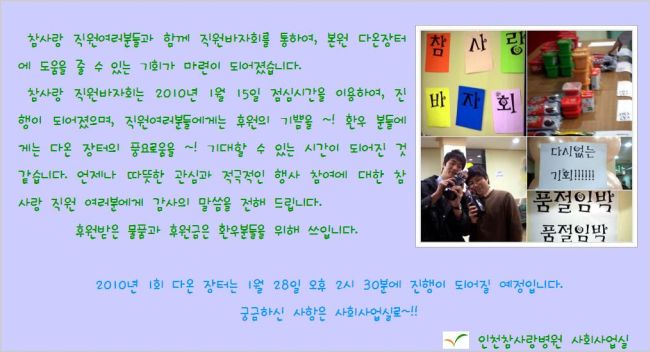 참사랑 직원여러분들과 함께 직원바자회를 통하여, 본원 다온장터
에 도움을 줄 수 있는 기회가 마련이 되어졌습니다.
참사랑 직원바자회는 2010년 1월 15일 점심시간을 이용하여, 진
행이 되어졌으며, 직원여러분들에게는 후원의 기쁨을 ~! 환우 분들에
게는 다온 장터의 풍요로움을 ~! 기대할 수 있는 시간이 되어진 것
같습니다. 언제나 따뜻한 관심과 적극적인 행사 참여에 대한 참
사랑 직원 여러분에게 감사의 말씀을 전해 드립니다.
후원받은 물품과 후원금은 환우분들을 위해 쓰입니다.
참사랑
바자회
다시없는
기회!!!!!!
품절임박
품절임박
2010년 1회 다온 장터는 1월 28일 오후 2시 30분에 진행이 되어질 예정입니다.
궁금하신 사항은 사회사업실로~!!
인천참사랑병원 사회사업실